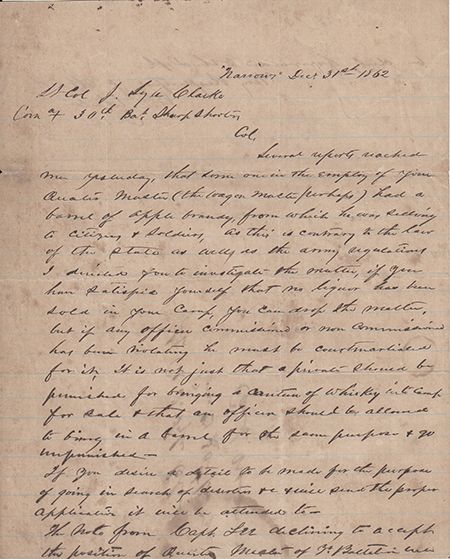 "Narrows" Dec 31st 1862
Lt Col J. Lyle Clarke
Com 30th Bat Sharp Shooters
Col,
Several reports reached
me yesterday, that some one in the employ of your
Quarter Master (the wagon master perhaps) had a
barrel of apple brandy, from which he was selling
to citizens & soldiers, as this is contrary to the law
of the State as well as the army regulations
I desired you to investigate the matter, if you
have satisfied yourself that no liquor has been
sold in your camp, you can drop the matter,
but if any officer commissioned or non commissioned
has been violating he must be courtmartialed
for it. It is not just that a private should be
punished for bringing a canteen of whisky into camp
for sale & that an officer should be allowed
to bring in a barrel for the same purpose & go
unpunished—
If you desire a detail to be made for the purpose
of going in search of deserters & c send the proper
application it will be attended to—
The Note from Capt. declining to accept
the position of Quarter Master of Battalion was